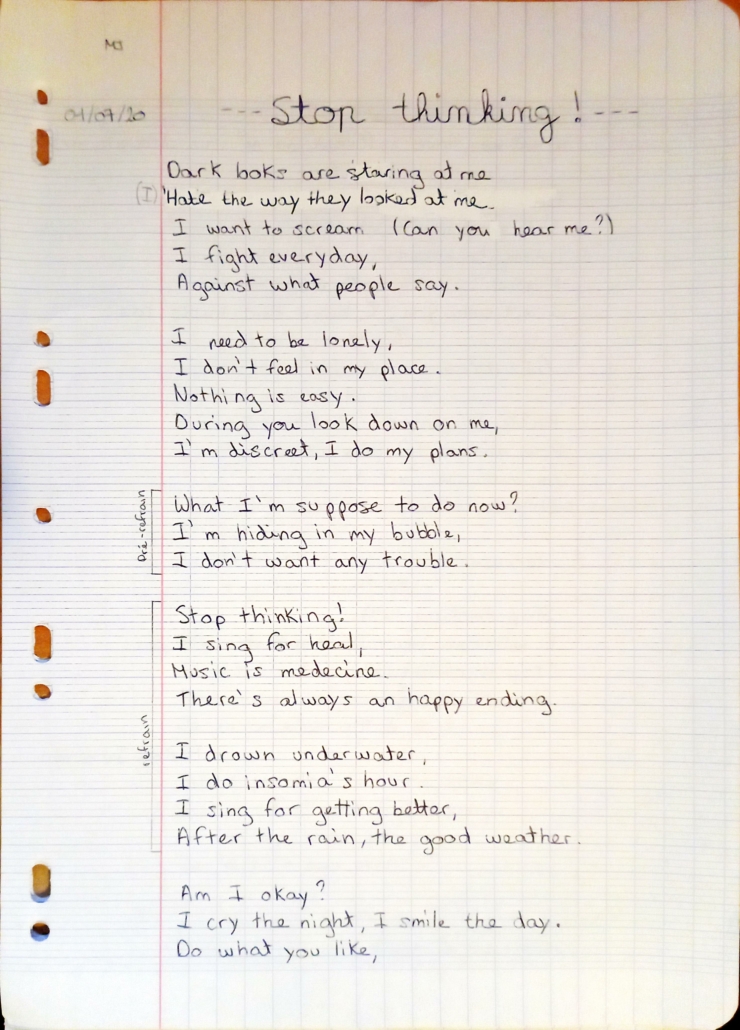 MJ
01/07/20
--- Stop thinking! ---
Dark looks are staring at me
(I) Hate the way they looked at me.
I want to scream (Can you hear me?)
I fight everyday,
Against what people say.
I need to be lonely,
I don't feel in my place.
Nothing is easy.
During you look down on me,
I'm discreet, I do my plans.
Pré-refrain
What I'm suppose to do now?
I'm hiding in my bubble,
I don't want any trouble.
refrain
Stop thinking!
I sing for heal,
Music is medecine.
There's always an happy ending.
I drown underwater,
I do insomia's hour.
I sing for getting better,
After the rain, the good weather.
Am I okay?
I cry the night, I smile the day.
Do what you like,